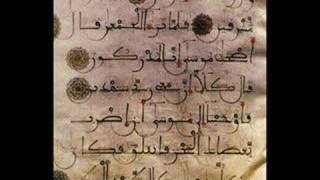 مشرقين فلما ترءا الجمعن قال
أصحب موسى إنا لمدركون
قال كلا إن معي ربي سيهدين
فأوحينا إلى موسى أن اضرب
بعصاك البحر فانفلق فكا